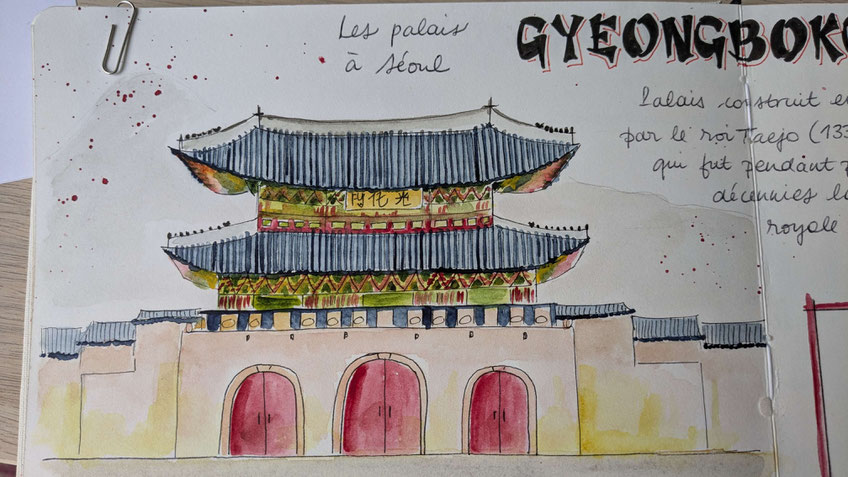 Les palais
à Séoul
GYEONGBOK
Palais construit e
par le roi Taejo (133
qui fut pendant
décennies la
royale
門化光